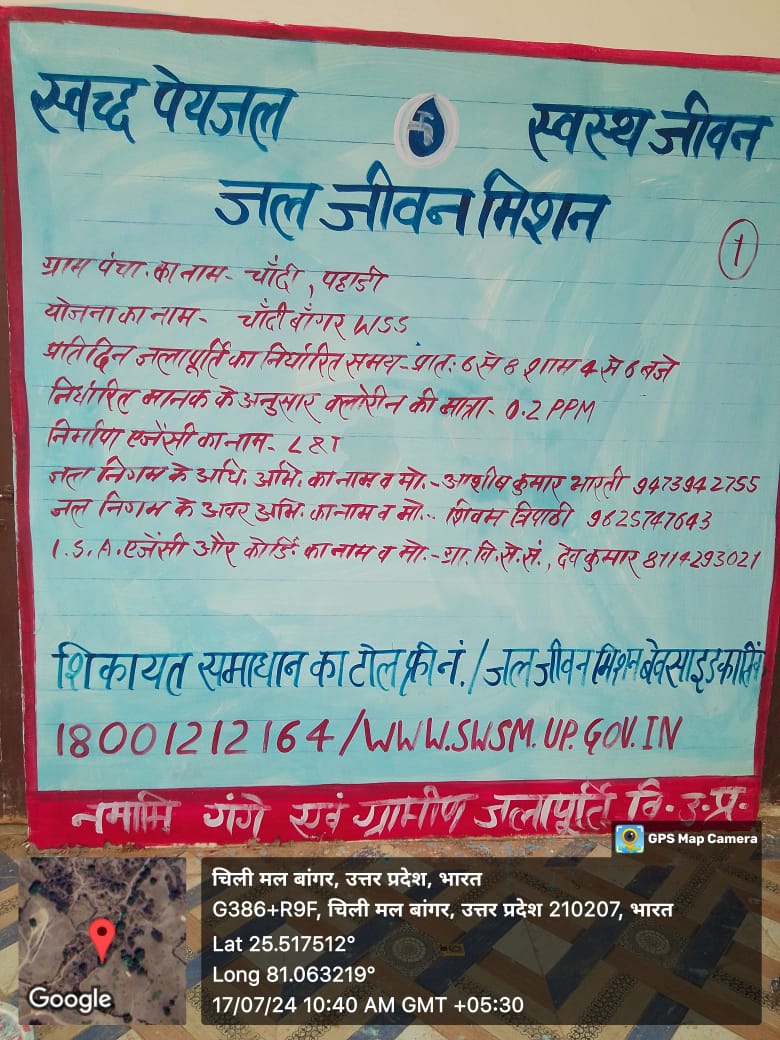 स्वच्छ पेयजल स्वस्थ जीवन
जल जीवन मिशन
1
ग्राम पंचा. का नाम- चाँदी, पहाडी
योजना का नाम- चाँदी बाँगर WSS
प्रतिदिन जलापूर्ति का निर्धारित समय- प्रात: 6 से 8 शाम 4 से 6 बजे
निर्धारित मानक के अनुसार क्लोरीन की मात्रा- 0.2 PPM
निर्माण एजेंसी का नाम- L&T
जल निगम के अधि. अभि. का नाम व मो.- आशीष कुमार भारती 9473942755
जल निगम के अवर अभि. का नाम व मो.- शिवम त्रिपाठी 9625747643
I.S.A. एजेंसी और कोर्डि. का नाम व मो.- ग्रा. वि. से. सं., देव कुमार 8114293021
शिकायत समाधान का टोल फ्री नं. / जल जीवन मिशन बेवसाइड का लिंक
18001212164/WWW.SWSM.UP.GOV.IN
नमामि गंगे एवं ग्रामीण जलापूर्ति वि. उ. प्र.
GPS Map Camera
चिली मल बांगर, उत्तर प्रदेश, भारत
G386+R9F, चिली मल बांगर, उत्तर प्रदेश 210207, भारत
Lat 25.517512°
Long 81.063219°
17/07/24 10:40 AM GMT +05:30
Google